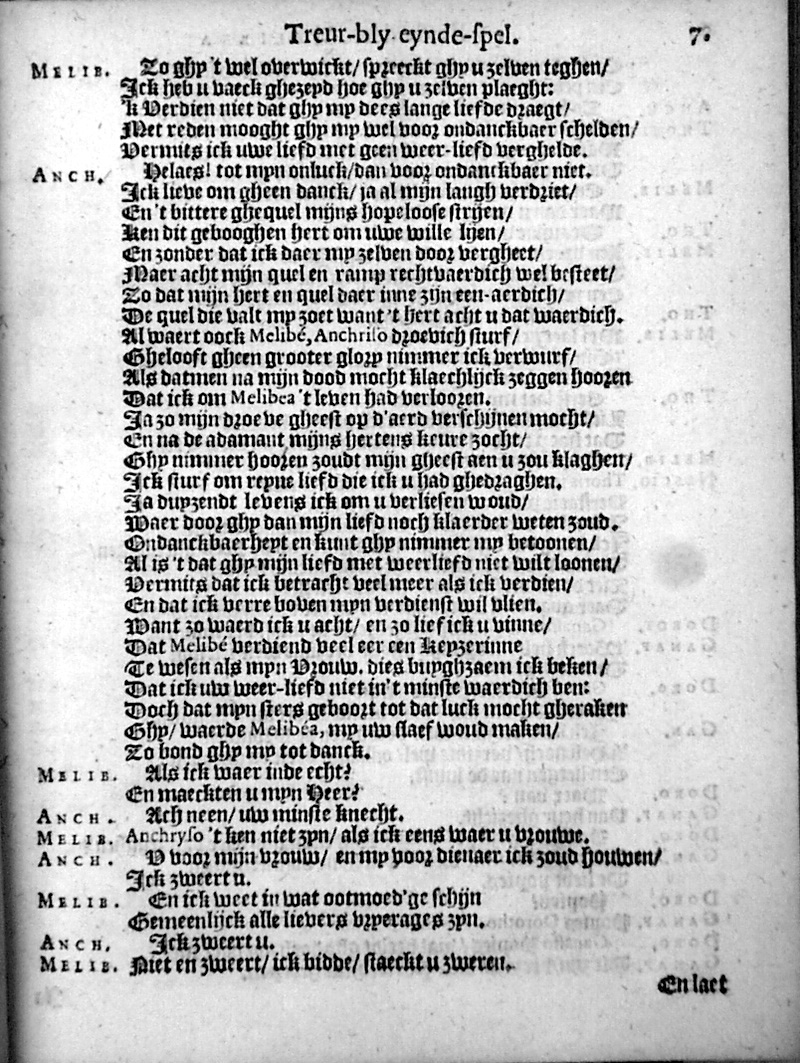 Treur-bly eynde-spel. 7.
MELIB. Zo ghy 't wel overwickt/ spreeckt ghy u zelven teghen/
Ick heb u vaeck ghezeyd hoe ghy u zelven plaeght:
'k Verdien niet dat ghy my dees lange liefde draegt/
Met reden mooght ghy my wel voor ondanckbaer schelden/
Vermits ick uwe liefd met geen weer-liefd verghelde.
ANCH. Helaes! tot myn onluck/dan voor ondanckbaer niet.
Ick lieve om gheen danck/ ja al mijn langh verdriet/
En 't bittere ghequel mijns hopeloose strijen/
Ken dit gebooghen hert om uwe wille lijen/
En zonder dat ick daer my zelven door vergheet/
Maer acht mijn quel en ramp rechtvaerdich wel besteet/
Zo dat mijn hert en quel daer inne zijn een-aerdich/
De quel die valt my zoet want 't hert acht u dat waerdich.
Al waert oock Melibé, Anchriso droevich sturf/
Ghelooft gheen grooter glory nimmer ick verwurf/
Als datmen na mijn dood mocht klaechlijck zeggen hooren
Dat ick om Melibea 't leven had verlooren.
Ja zo mijn droeve gheest op d'aerd verschijnen mocht/
En na de adamant mijns hertens keure zocht/
Ghy nimmer hooren zoudt mijn gheest aen u zou klaghen/
Ick sturf om reyne liefd die ick u had ghedraghen.
Ja duyzendt levens ick om u verliesen woud/
Waer door ghy dan mijn liefd noch klaerder weten zoud.
Ondanckbaerheyt en kunt ghy nimmer my betoonen/
Al is 't dat ghy mijn liefd met weerliefd niet wilt loonen/
Vermits dat ick betracht veel meer als ick verdien/
En dat ick verre boven myn verdienst wil vlien.
Want zo waerd ick u acht/ en zo lief ick u vinne/
Dat Melibé verdiend veel eer een Keyzerinne
Te wesen als myn Vrouw. dies buyghzaem ick beken/
Dat ick uw weer-liefd niet in't minste waerdich ben:
Doch dat myn sters geboort tot dat luck mocht gheraken
Ghy/ waerde Melibéa, my uw slaef woud maken/
Zo bond ghy my tot danck.
MELIB. Als ick waer inde echt?
En maeckten u myn Heer?
ANCH. Ach neen/ uw minste knecht.
MELIB. Anchryso 't ken niet zyn/ als ick eens waer u vrouwe.
ANCH. V voor mijn vrouw/ en my voor dienaer ick zoud houwen/
Ick zweert u.
MELIB. En ick weet in wat ootmoed'ge schijn
Gemeenlijck alle lievers vryerages zyn.
ANCH. Ick zweert u.
MELIB. Niet en zweert/ ick bidde/ staeckt u zweren.
En laet